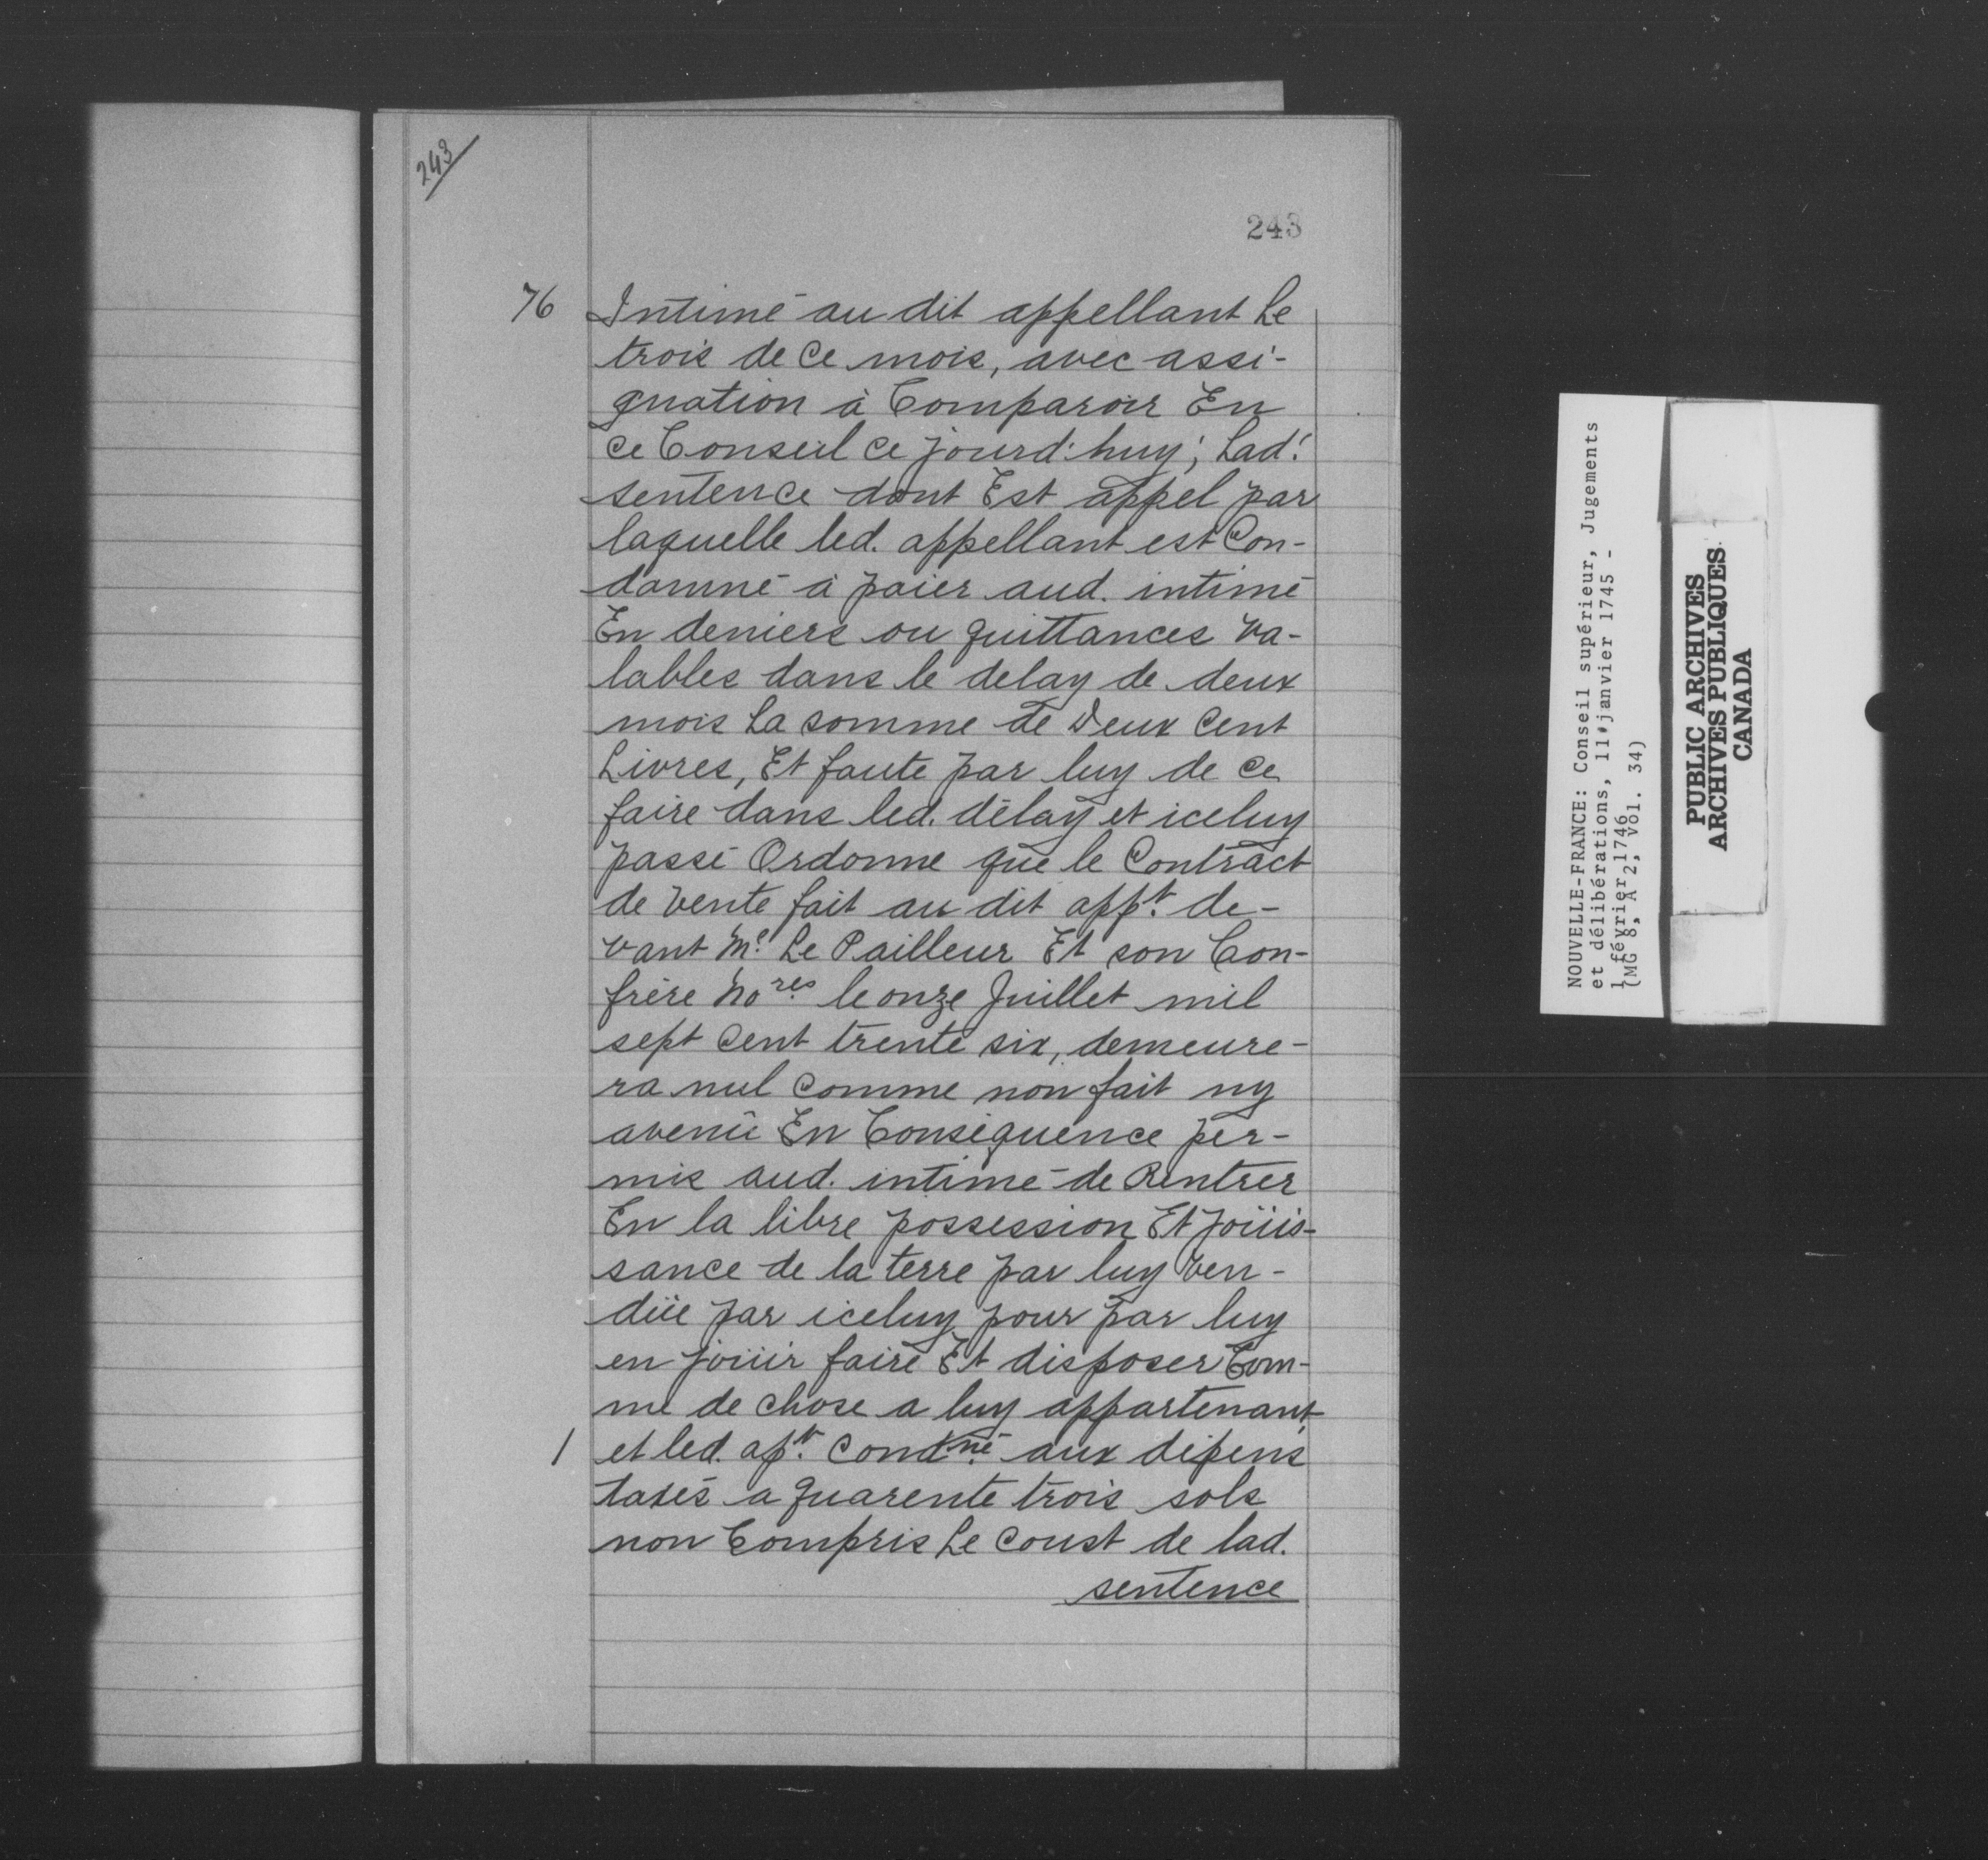 243
243
76 Intimé au dit appellant Le
trois de ce mois, avec assi-
gnation à Comparoir En
ce Conseil ce jourd'huy; Lad.
sentence dont Est appel par
laquelle led. appellant est Con-
damné à païer aud. intimé
En deniers ou quittances va-
lables dans le delay de deux
mois La somme de Deux Cent
Livres, Et faute par luy de ce
faire dans led. délay et iceluy
passé Ordonne que le Contract
de vente fait au dit appt. de-
vant Me. Le Pailleur Et son Con-
frère Nores. le onze Juillet mil
sept Cent trente six, demeure-
ra nul comme non fait ny
avenü En Conséquence per-
mis aud. intimé de Rentrer
En la libre possession Et joüis-
sance de la terre par luy Ven-
düe par iceluy pour par luy
en joüir faire Et disposer Com-
me de chose a luy appartenant
/ et led. apt. condné. aux dépens
taxés a quarente trois sols
non Compris Le Coust de lad.
sentence
NOUVELLE-FRANCE: Conseil supérieur, Jugements
et délibérations, 11 janvier 1745 -
1 février 1746
(MG 8, A 2, vol. 34)
PUBLIC ARCHIVES
ARCHIVES PUBLIQUES
CANADA